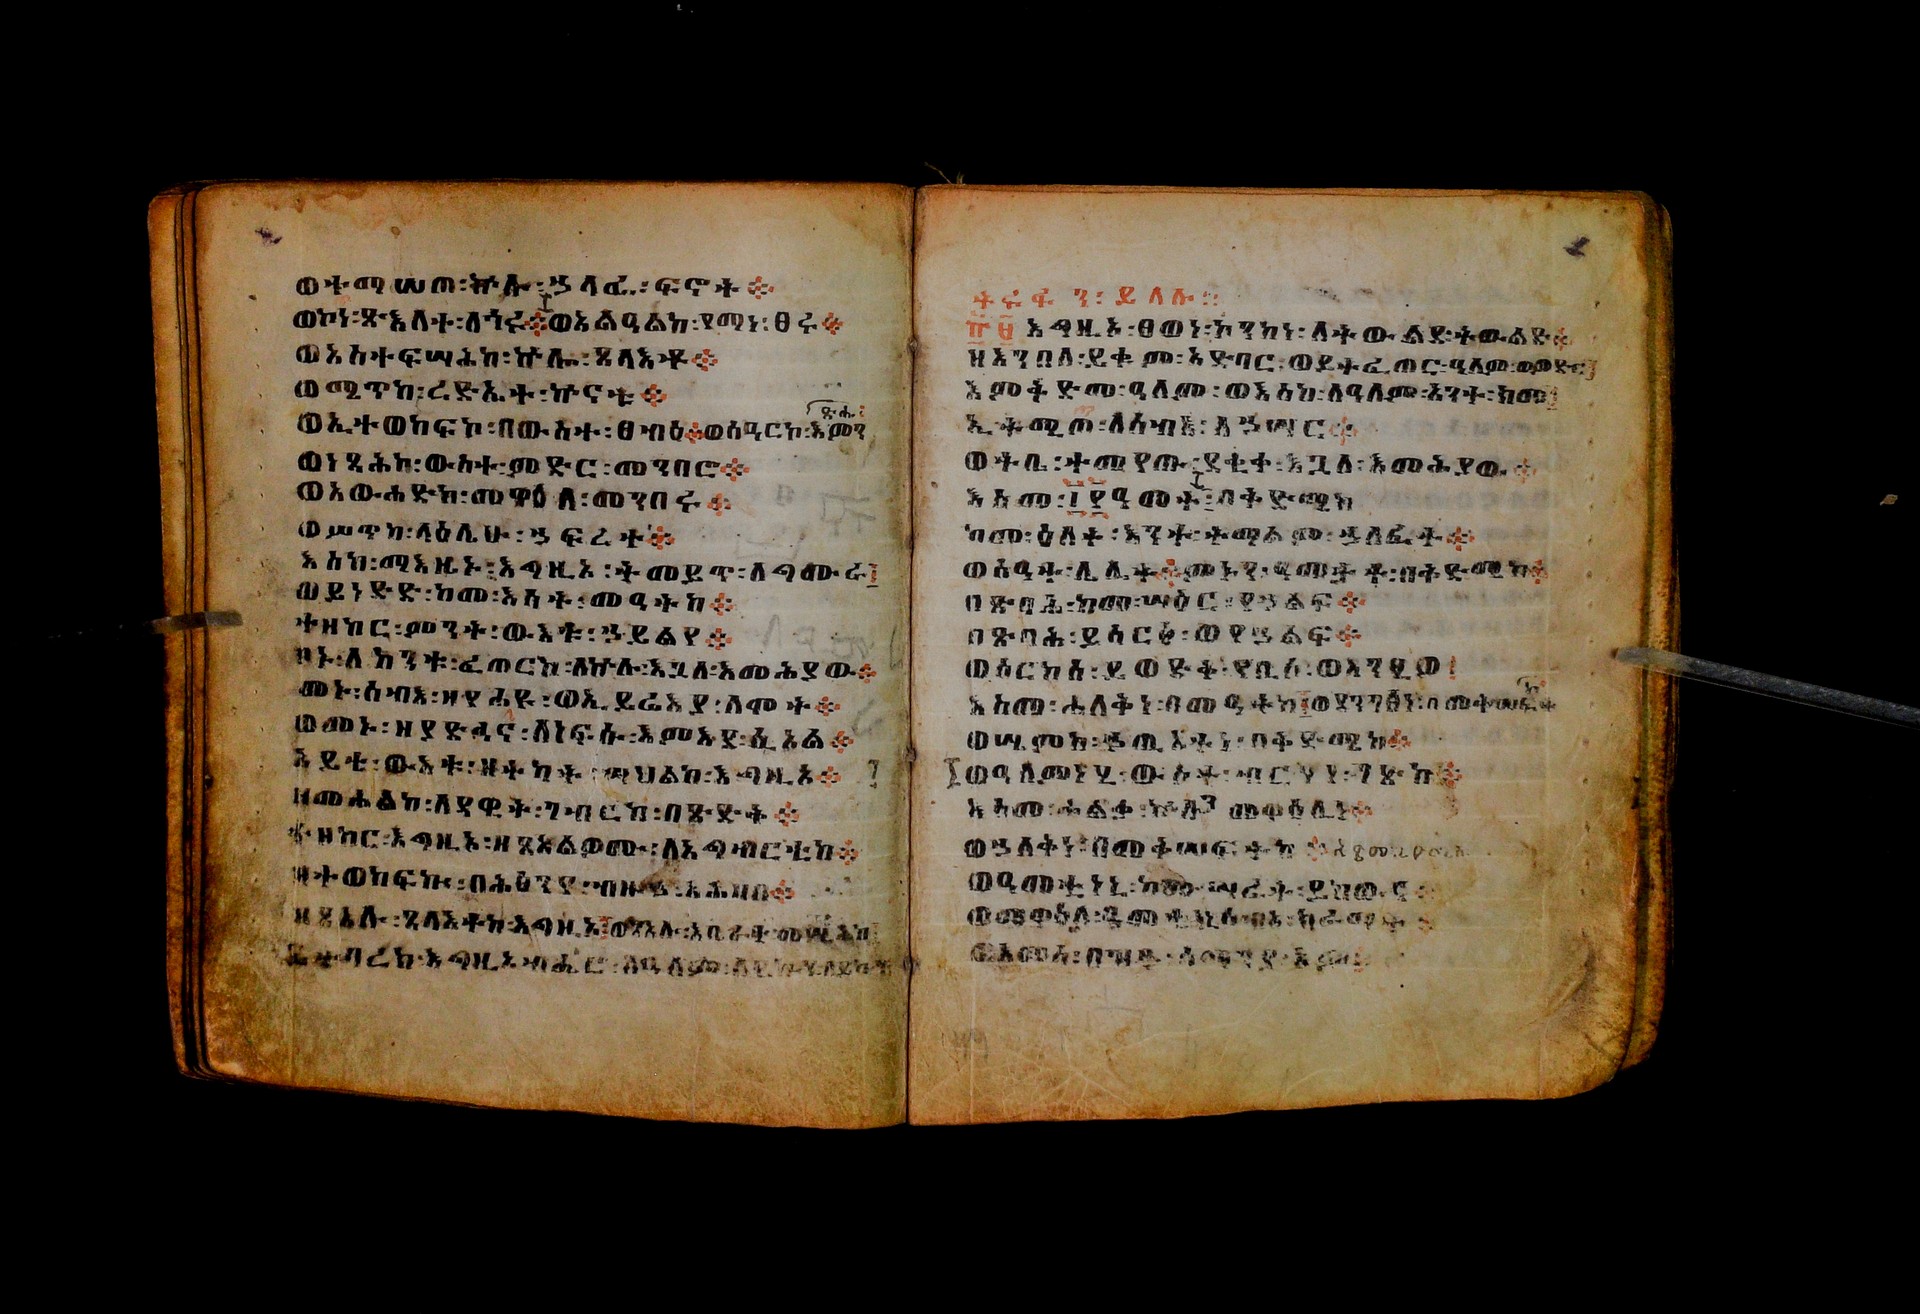 ወተማሠጠ፡ኵሉ፡ኃላፌ፡ፍኖት፨
ወኮነ፡ጽእለተ፡ለጎሩ፨ወአልዓልከ፡የማነ፡ፀሩ፨
ወአስተፍሣሕከ፡ኵሎ፡ጸላእቶ፨
ወሜጥከ፡ረድኤተ፡ኵናቱ፨
ወኢተወከፍኮ፡በውስተ፡ፀብዕ፨ወሰዓርኮ፡እምን
ጽሑ፡
ወነፂሕከ፡ውስተ፡ምድር፡መንበሮ፨
ወአውሐድከ፡መዋዕለ፡መንበሩ፨
ወሦጥከ፡ላዕሌሁ፡ኃፍረተ፨
እስከ፡ማእዜኑ፡እግዚኦ፡ትመይጥ፡ለግሙራ
ወይነድድ፡ከመ፡እሳት፡መዓትከ፨
ተዘከር፡ምንት፡ውእቱ፡ኃይልየ፨
ቦኑ፡ለከንቱ፡ፈጠርከ፡ለኵሉ፡እጓለ፡እመሕያው፨
መኑ፡ሰብእ፡ዘየሐዩ፡ወኢይሬእያ፡ለሞት፨
ወመኑ፡ዘያድኅና፡ለነፍሱ፡እምእደ፡ሲኦል፨
አይቴ፡ውእቱ፡ዘትካት፡ሣህልከ፡እግዚኦ፨
ዘመሐልከ፡ለዳዊት፡ገብርከ፡በጽድቅ፨
ተዘከር፡እግዚኦ፡ዘጸአልዎሙ፡ለአግብርቲከ፨
ዘተወከፍኩ፡በሕፅንየ፡ብዙኃ፡አሕዛበ፨
ዘጸአሉ፡ጸላእትከ፡እግዚኦ
ይትባረክ፡እግዚአብሔር፡ለዓለም፡ለይኩን፡ለይኩን
ትሩፍን፡ይለሉ፡
፹፱ እግዚኦ፡ፀወነ፡ኮንከነ፡ለትውልደ፡ትውልድ፨
ዘእንበለ፡ይቁም፡አድባር፡ወይትፈጠር፡ዓለም፡ወምድር
እምቅድመ፡ዓለም፡ወእስከ፡ለዓለም፡አንተ፡ክመ
ኢትሚጦ፡ለሰብእ፡ለኃሣር፨
ወትቤ፡ተመየጡ፡ደቂቀ፡እጓለ፡እመሕያው፨
እስመ፡፲፻ዓመት፡በቅድሜከ
ከመ፡ዕለት፡እንተ፡ትማልም፡ኃለፈት፨
ወሰዓቱ፡ሌሊት፨ምኑን፡ዓመቲሆሙ፡በቅድሜከ፨
በጽባሕ፡ከመ፡ሣዕር፡የኃልፍ፨
በጽባሕ፡ይሠርፅ፡ወየኃልፍ፨
ወሰርከሰ፡ይወድቅ፡የቢስ፡ወእንፂዎ፡
እስመ፡ሐለቅነ፡በመዓትከ፡ወደንገፅነ፡በመቅሠፍትከ
ወሤምከ፡ኃጢአተነ፡በቅድሜከ፨
ወዓለምነሂ፡ውስተ፡ብርሃነ፡ገጽከ፨
እስመ፡ሐልቀ፡ኵሉ፡መዋዕሊነ፨
ወኃለቅነ፡በመቅሠፍትከ፨
ወዓመቲነኒ፡ከመ፡ሣሬት፡ይከውና፨
ወመዋዕለ፡ዓመቲነ፡ሰብዓ፡ክረምት፨